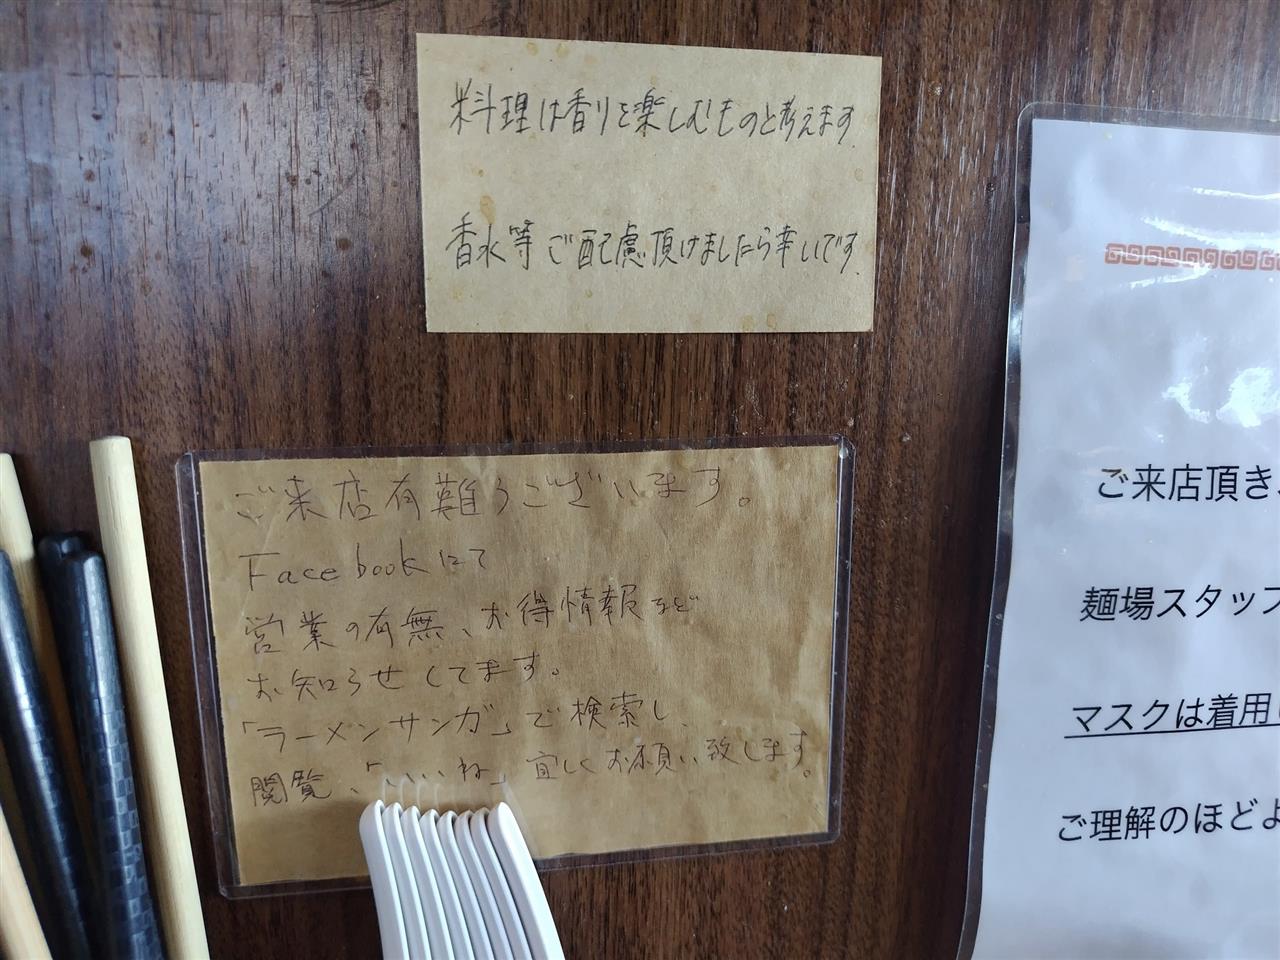 料理は香りを楽しむものと考えます
香水等ご配慮頂けましたら幸いです
ご来店有難うございます。
Facebookにて
営業の有無、お得情報など
お知らせしてます。
「ラーメンサンガ」で検索し、
閲覧、「いいね」宜しくお願い致します。
ご来店頂き、
麺場スタッフ
マスクは着用し
ご理解のほどよ